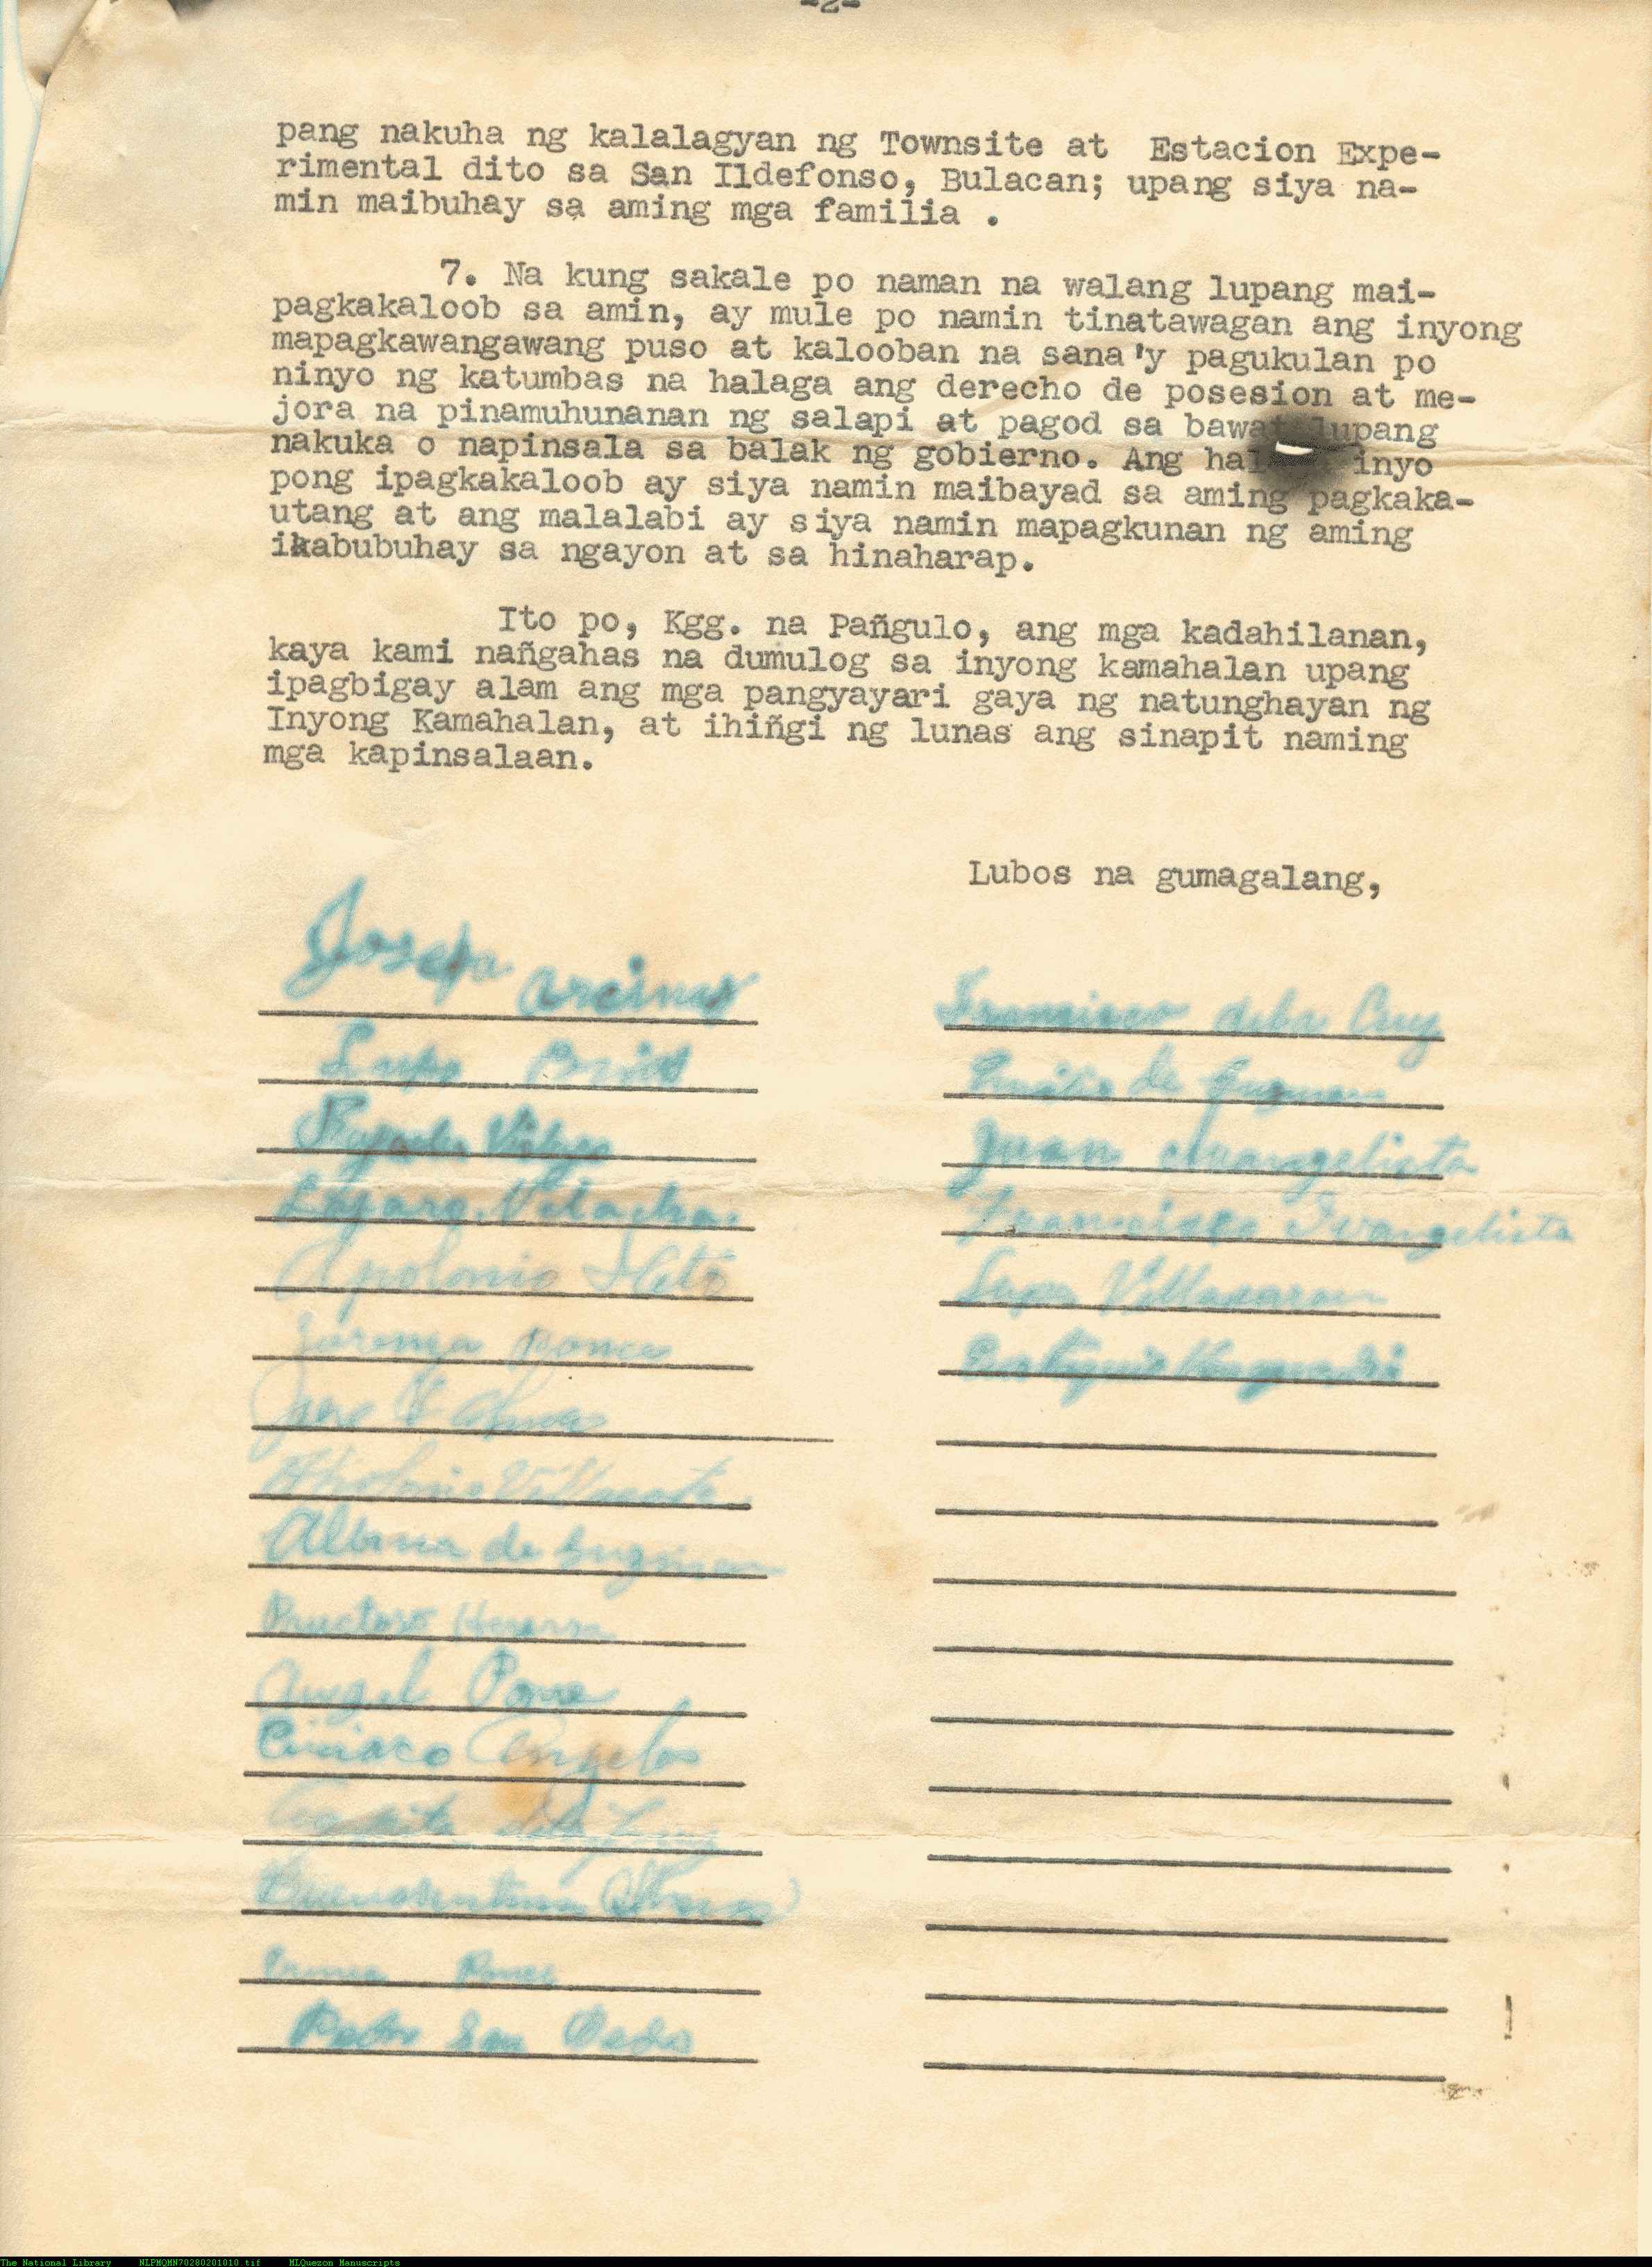 -2-
pang nakuha ng kalalagyan ng Townsite at Estacion Expe-
rimental dito sa San Ildefonso, Bulacan; upang siya na-
min maibuhay sa aming mga familia .
7. Na kung sakale po naman na walang lupang mai-
pagkakaloob sa amin, ay mule po namin tinatawagan ang inyong
mapagkawangawang puso at kalooban na sana'y pagukulan po
ninyo ng katumbas na halaga ang derecho de posesion at me-
jora na pinamuhunanan ng salapi at pagod sa bawat lupang
nakuka o napinsala sa balak ng gobierno. Ang inyo
pong ipagkakaloob ay siya namin maibayad sa aming pagkaka-
utang at ang malalabi ay siya namin mapagkunan ng aming
ikabubuhay sa ngayon at sa hinaharap.
Ito po, Kgg. na Pañgulo, ang mga kadahilanan,
kaya kami nañgahas na dumulog sa inyong kamahalan upang
ipagbigay alam ang mga pangyayari gaya ng natunghayan ng
Inyong Kamahalan, at ihiñgi ng lunas ang sinapit naming
mga kapinsalaan.
Lubos na gumagalang,
Josefa
Francisco dela Cruz
Lupo
Emilio de Guzman
Juan evangelista
Lazaro
Francisco Ivangelista
Apolonio
Lupo Villasaran
Ponce
Jose
Albina de Guzman
Fructoso Herera
Angel Ponce
Ciriaco Angeles
dela Cruz
Buenaventura
Ponce
Pedro San Pedro
The National Library NLPMQMN70280201010.tif MLQuezon Manuscripts